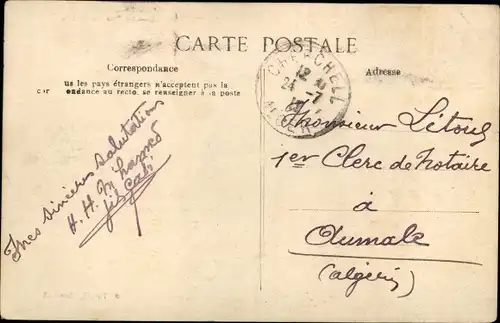 CARTE POSTALE
Correspondance
us les pays étrangers n'acceptent pas la
cor ondance au recto. se renseigner à la poste
Mes sincères salutations
H. H.
Adresse
CHERCHELL
12
24 -7
ALGER
Monsieur Létoul
1er Clerc de Notaire
à
Aumale
(Algérie)